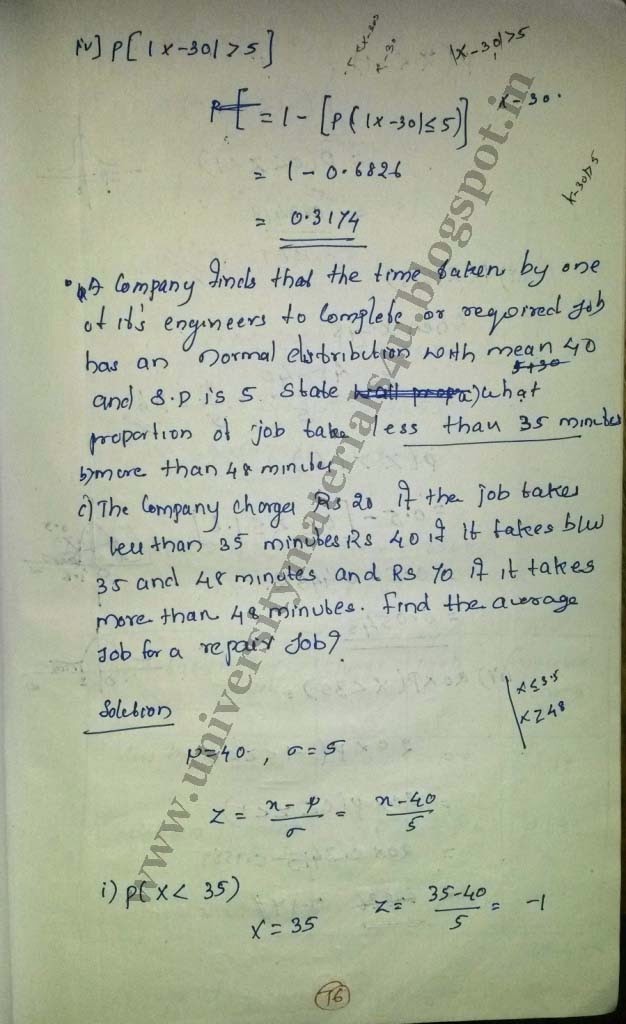 iv) P[ |x-30| > 5 ]
|x-30| > 5
= 1 - [P(|x-30| ≤ 5)]
x-30.
= 1 - 0.6826
x-30|>5
= 0.3174
A Company finds that the time taken by one
of it's engineers to Complete or required Job
has an normal distribution with mean 40
5+30
and S.D is 5 State a) what
proportion of job take less than 35 minutes
b) more than 48 minutes
c) The Company charges Rs 20 if the job takes
less than 35 minutes Rs 40 if it takes b/w
35 and 48 minutes and Rs 70 if it takes
more than 48 minutes. Find the average
Job for a repair Job?
Solution
x≤35
x≥48
μ=40 , σ=5
z = x-μ/σ = x-40/5
i) P(x < 35)
x = 35 z = 35-40/5 = -1
76
www.universitymaterials4u.blogspot.in